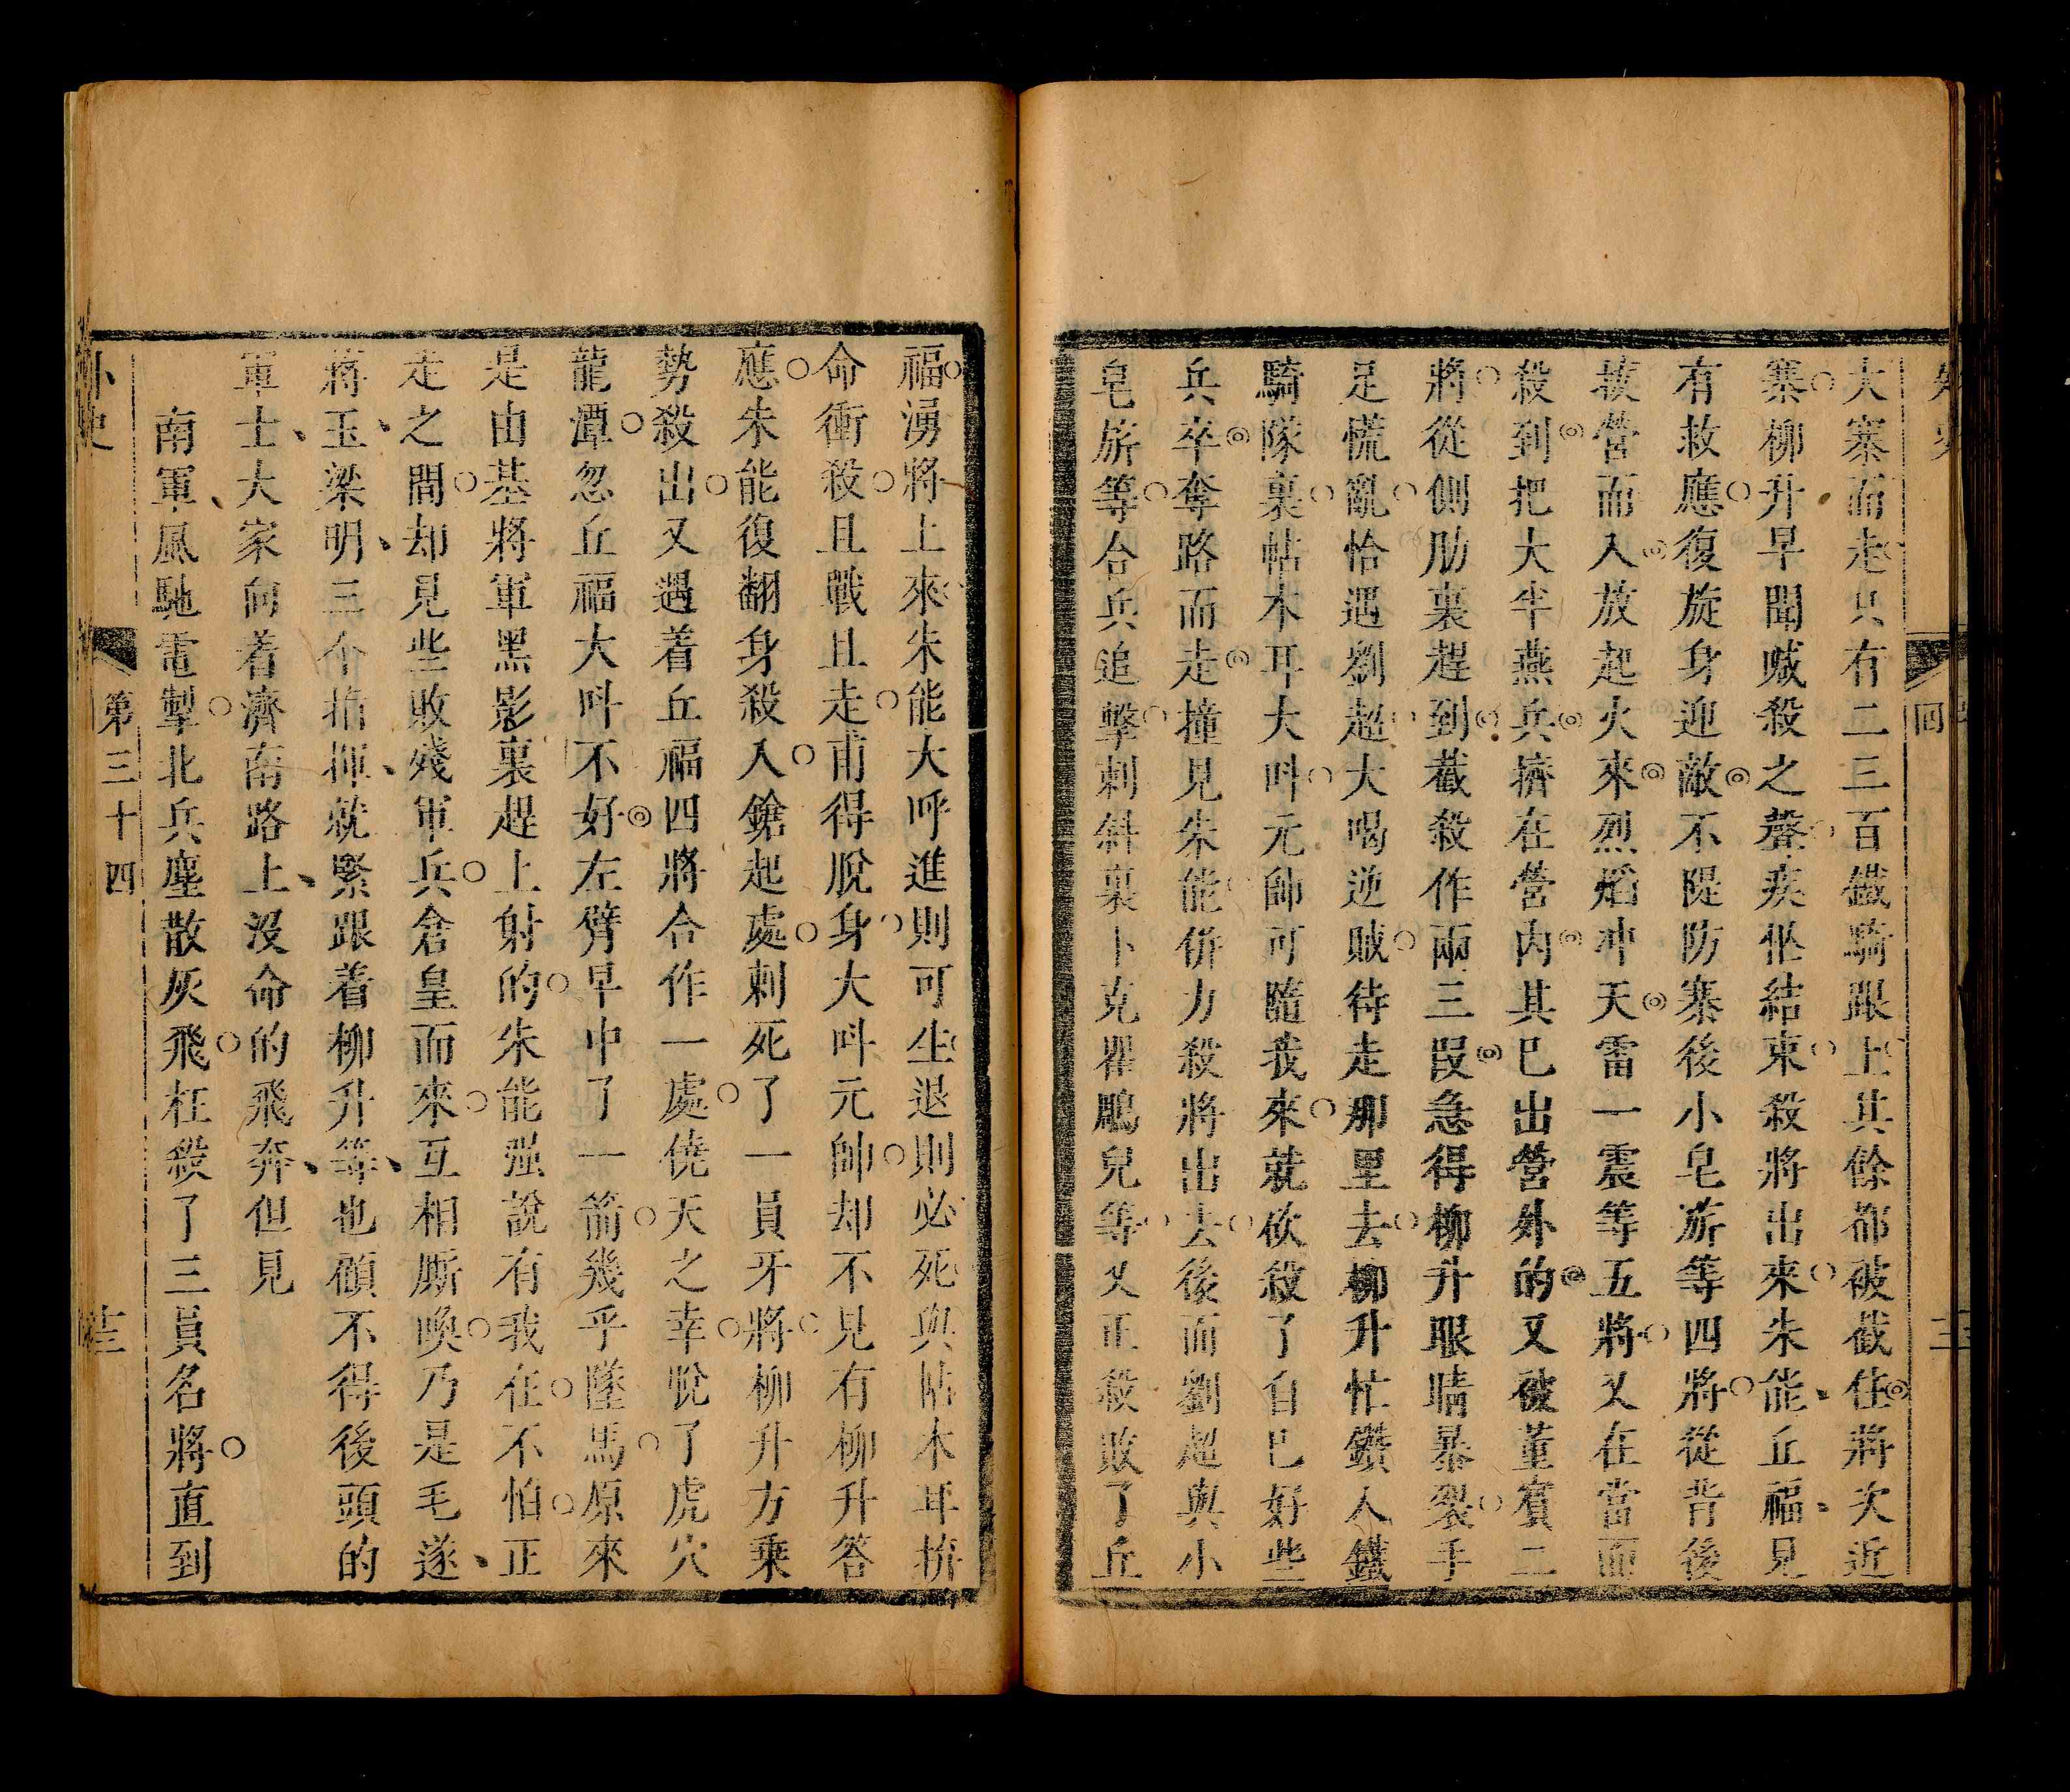 大寨而走只有二三百鐵騎跟上其餘都被截住蔣次近
寨柳升早聞喊殺之聲疾忙結束殺將出來朱能丘福見
有救應復旋身迎敵不隄防寨後小皂旂等四將從背後
拔營而入放起火來烈焰冲天雷一震等五將又在當面
殺到把大半燕兵擠在營內其已出營外的又被董賓二
將從側肋裏趕到截殺作兩三叚急得柳升眼睛暴裂手
足慌亂恰遇劉超大喝逆賊待走那里去柳升忙鑽人鐵
騎隊裏帖木耳大呌元帥可隨我來就砍殺了自巳好些
兵卒奪路而走撞見朱能併力殺將出去後面劉超與小
皂旂等合兵追擊刺斜裏卜克瞿鵰兒等又正殺敗了丘
福湧將上來朱能大呼進則可生退則必死與帖木耳拚
命衝殺且戰且走甫得脫身大呌元帥却不見有柳升答
應朱能復翻身殺入鎗起處刺死了一員牙將柳升方乗
勢殺出又遇着丘福四將合作一處僥天之幸脫了虎穴
龍潭忽丘福大呌不好左臂早中了一箭幾乎墜馬原來
是由基將軍黑影裏趕上射的朱能强說有我在不怕正
走之間却見些敗殘軍兵倉皇而來互相厮喚乃是毛遂
蔣玉梁明三个指揮就緊跟着柳升等也顧不得後頭的
軍士大家向着濟南路上沒命的飛奔但見
南軍風馳電掣北兵塵散灰飛枉殺了三員名將直到
外史
第三十四